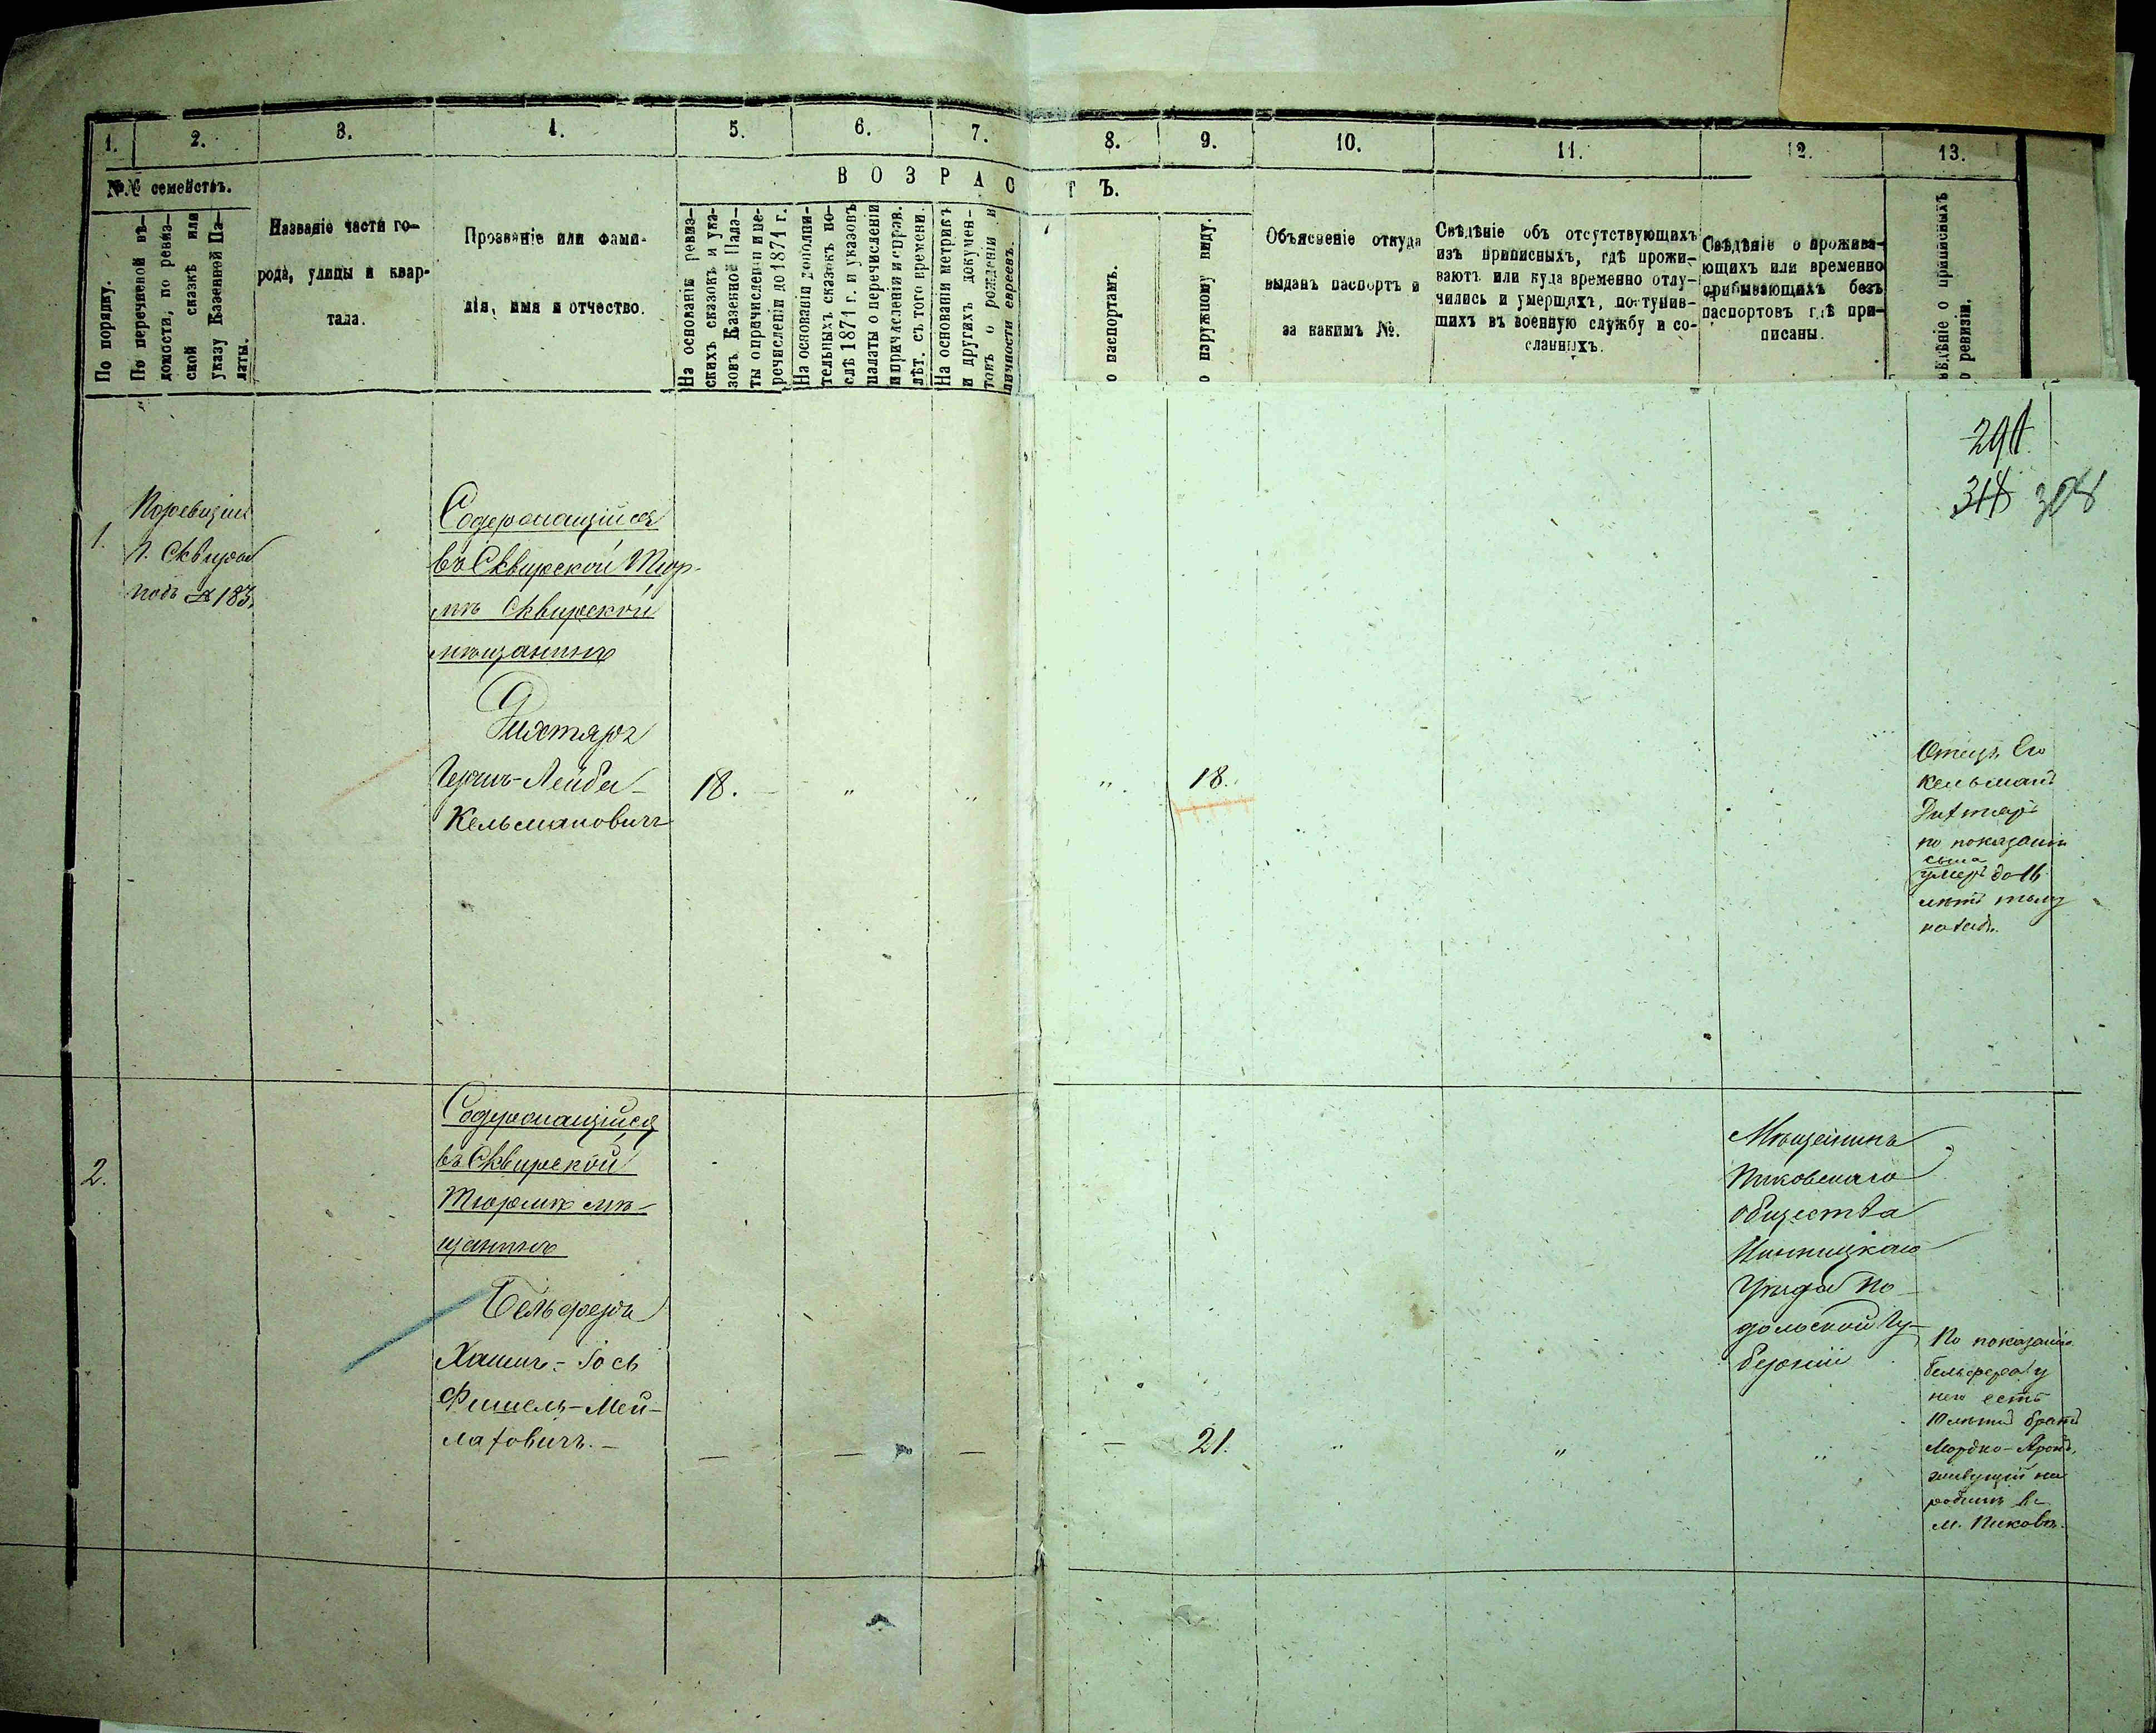 1. 2. 3. 4. 5. 6. 7. 8. 9. 10. 11. 12. 13.
№№ семействъ.
По порядку.
По перечневой вѣ-
домости, по ревиз-
ской сказкѣ или
указу Казенной Па-
латы.
Названіе части го-
рода, улицы и квар-
тала.
Прозваніе или фами-
лія, имя и отчество.
ВОЗРАСТЪ.
На основаніи ревиз-
скихъ сказокъ и ука-
зовъ Казенной Пала-
ты о причисленіи и пе-
речисленіи до 1871 г.
На основаніи дополни-
тельныхъ сказокъ по-
слѣ 1871 г. и указовъ
палаты о перечисленіи
и причисленіи и справ.
лѣт. съ того времени.
На основаніи метрикъ
и другихъ докумен-
товъ о рожденіи и
личности евреевъ.
о паспортамъ.
о наружному виду.
Объясненіе откуда
выданъ паспортъ и
за какимъ №.
Свѣдѣніе объ отсутствующихъ
изъ приписныхъ, гдѣ прожи-
ваютъ или куда временно отлу-
чились и умершихъ, поступив-
шихъ въ военную службу и со-
сланныхъ.
Свѣдѣніе о прожива-
ющихъ или временно
прибывающихъ безъ
паспортовъ гдѣ при-
писаны.
вѣдѣніе о приписныхъ
о ревизіи.
308
1.
По ревизіи
г. Сквиры
подъ № 183.
Содержащійся
въ Сквирской Тюр-
мѣ Сквирской
мѣщанинъ
Рихтяръ
Гершъ-Лейба
Кельмановичъ
18. " " " 18.
Отецъ Его
Кельманъ
Рихтяръ
по показанію
сына
умеръ до 16
лѣтъ тому
назадъ.
2.
Содержащійся
въ Сквирской
Тюрмѣ мѣ-
щанинъ
Бельферъ
Хаимъ-Іось
Фишель-Мей-
лаховичъ.
— — — — 21. " " "
Мѣщанинъ
Пиковскаго
общества
Винницкаго
Уѣзда По-
дольской Гу-
берніи
По показанію
Бельфера у
него есть
10 лѣтній братъ
Мордко-Аронъ,
живущій на
родинѣ въ
м. Пиковѣ.